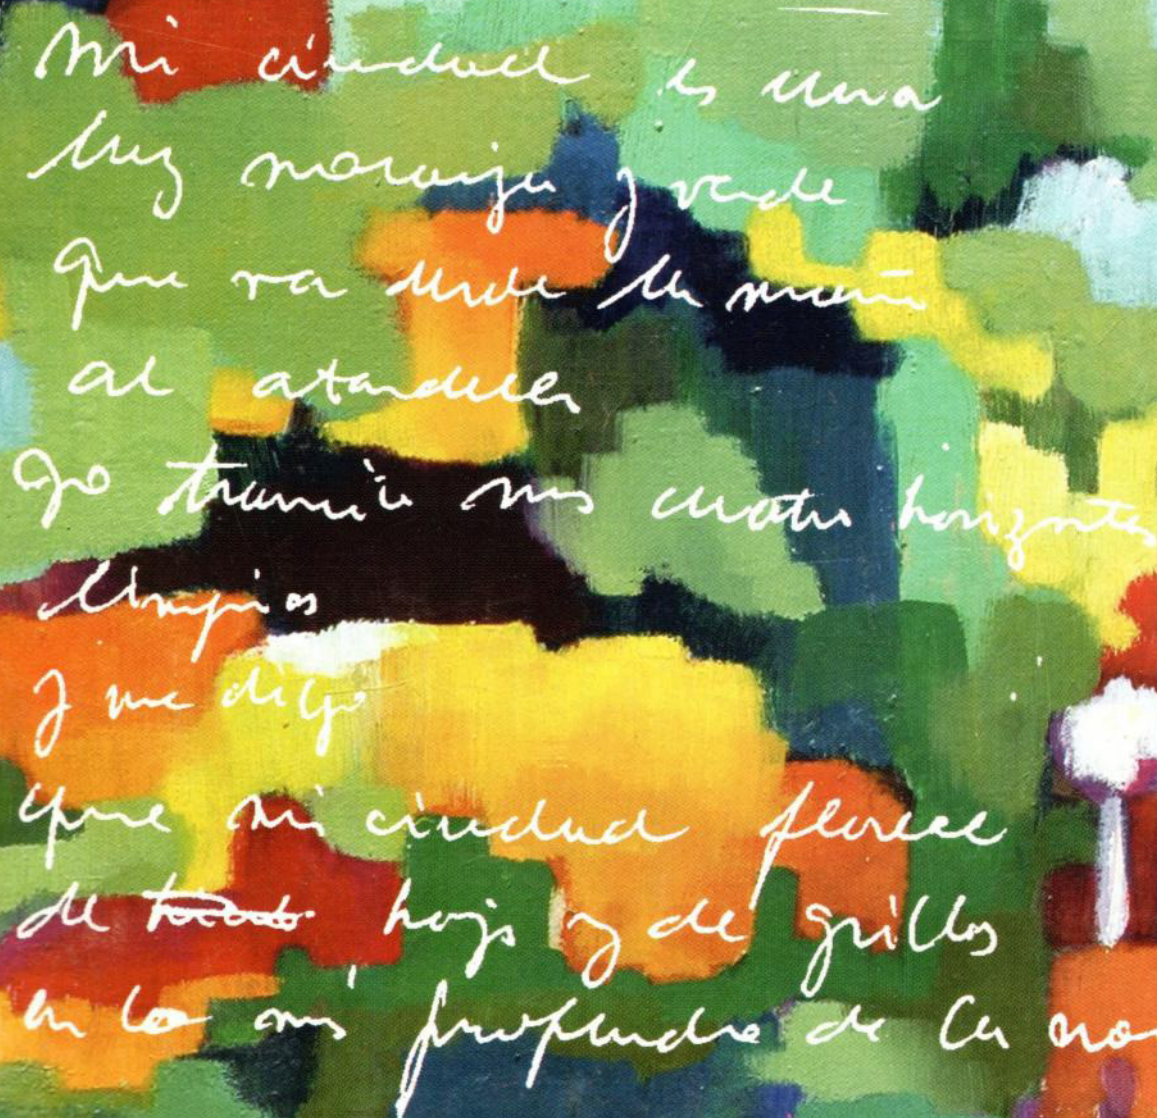 Mi ciudad es una
luz naranja y verde
que va desde la mañana
al atardecer
yo transito sus cuatro horizontes
limpios
y me digo
que mi ciudad florece
de hojas y de grillos
en lo más profundo de la no